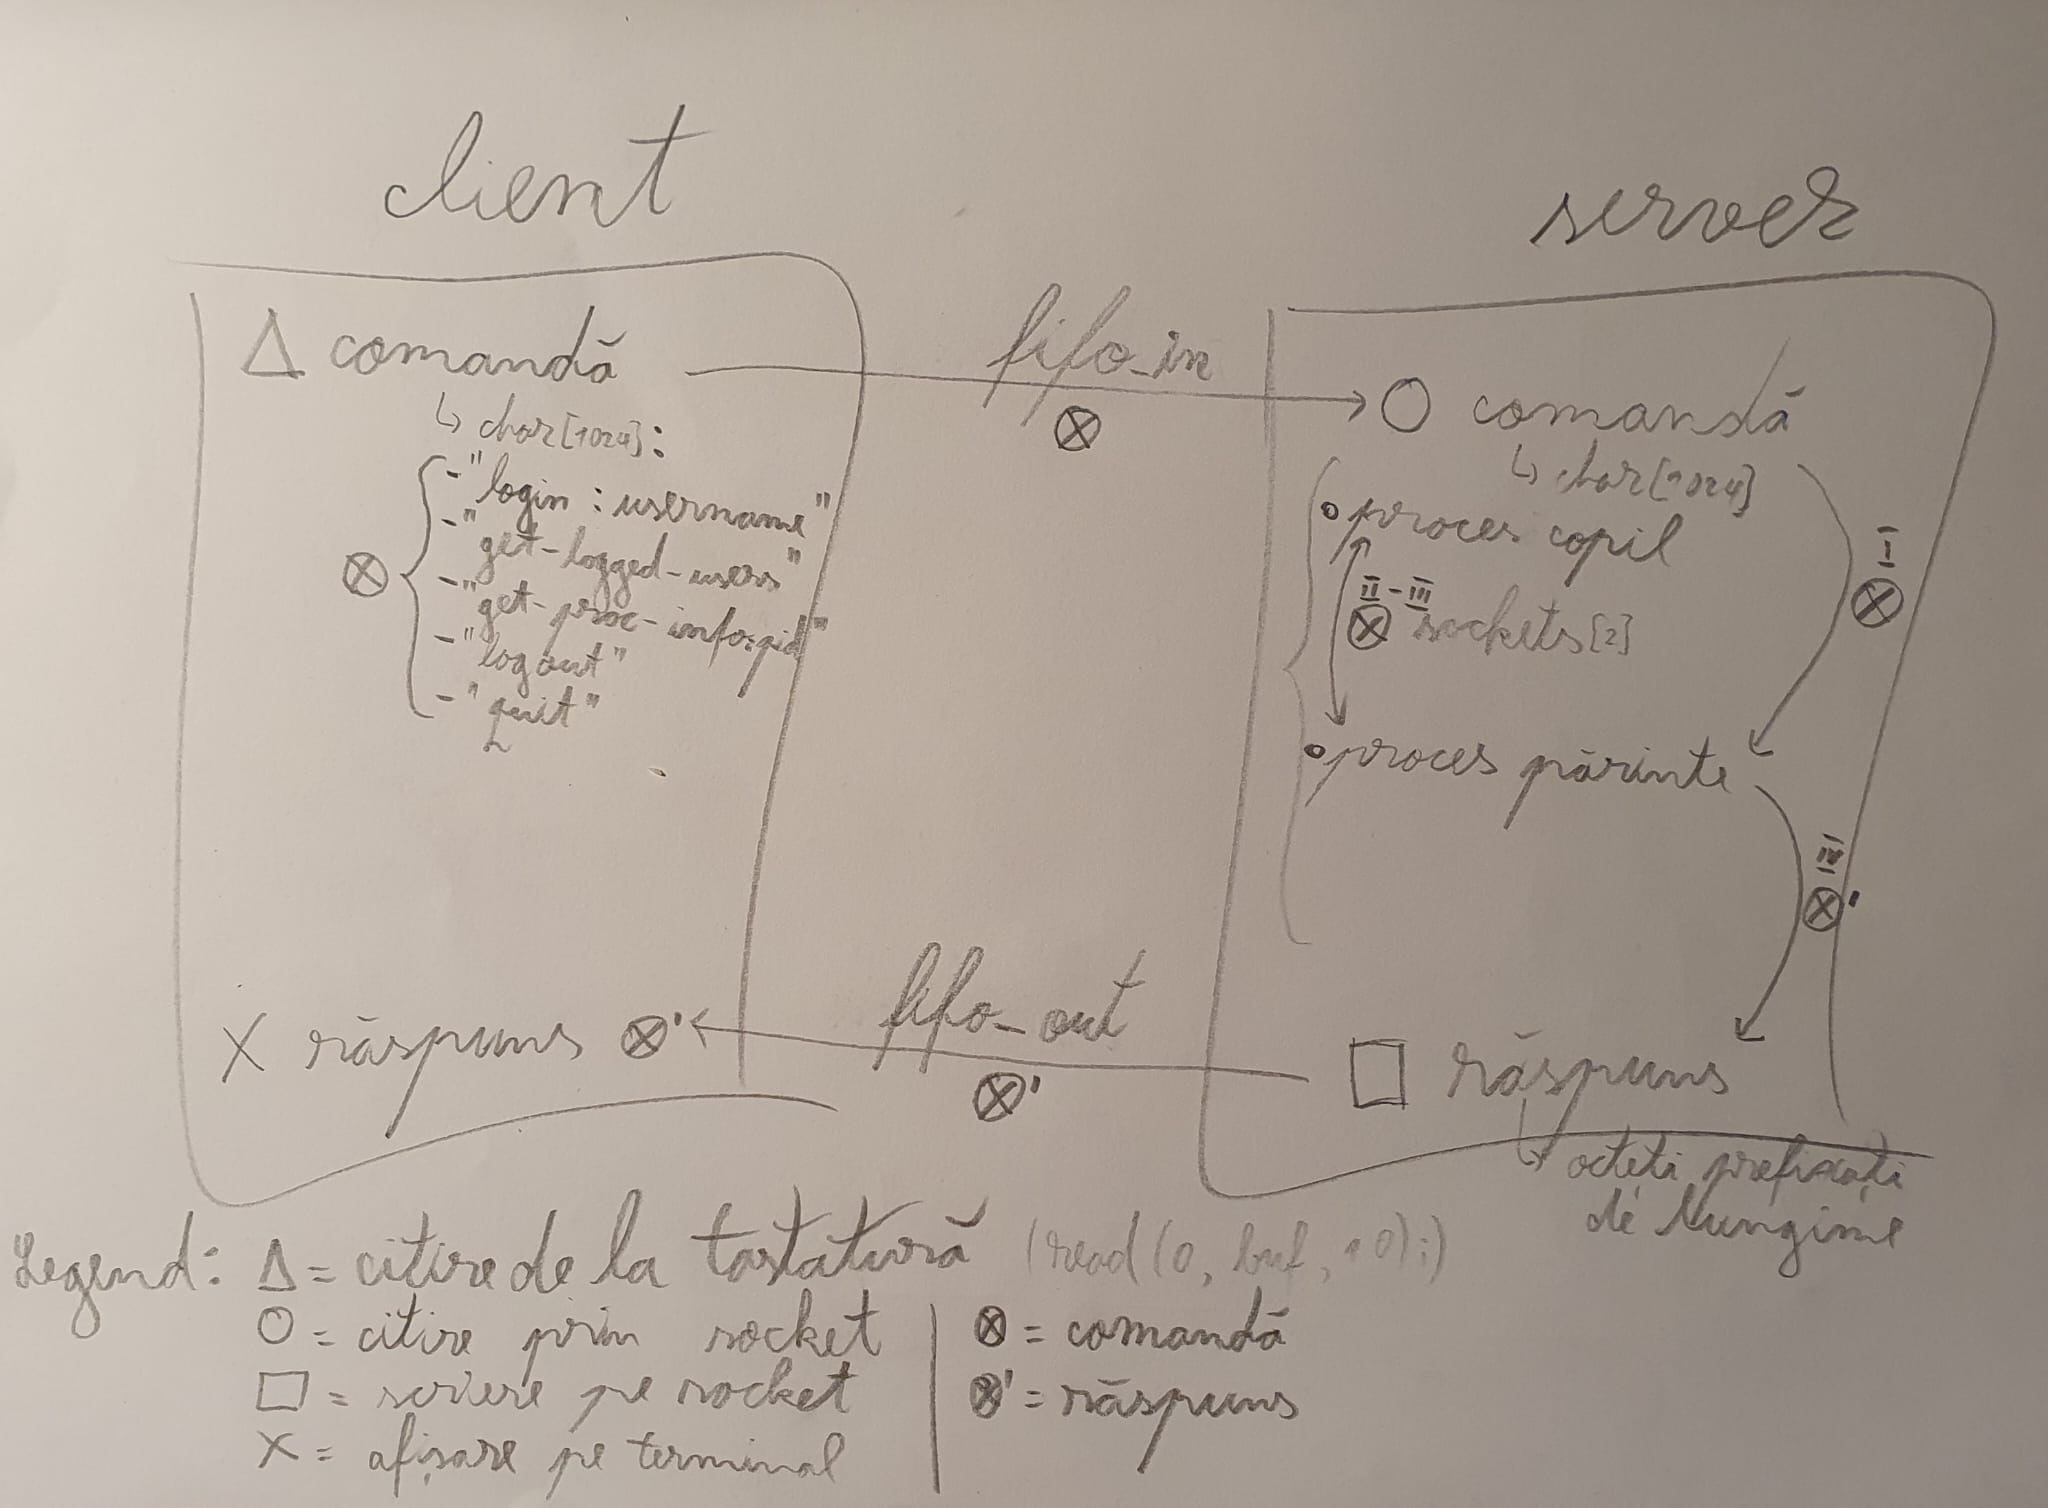 client
server
Δ comandă
↳ char[1024]:
⊗ { -"login : username"
-"get-logged-users"
-"get-proc-info:pid"
-"logout"
-"quit"
fifo_in
⊗
○ comandă
↳ char[1024]
• proces copil
II-III
⊗ sockets[2]
I
⊗
• proces părinte
IV
⊗'
X răspuns ⊗'
fifo_out
⊗'
□ răspuns
↳ octeți prefixați
de lungime
Legend: Δ = citire de la tastatură (read(0, buf, 10);)
○ = citire prin socket
□ = scriere pe socket
X = afișare pe terminal
⊗ = comandă
⊗' = răspuns